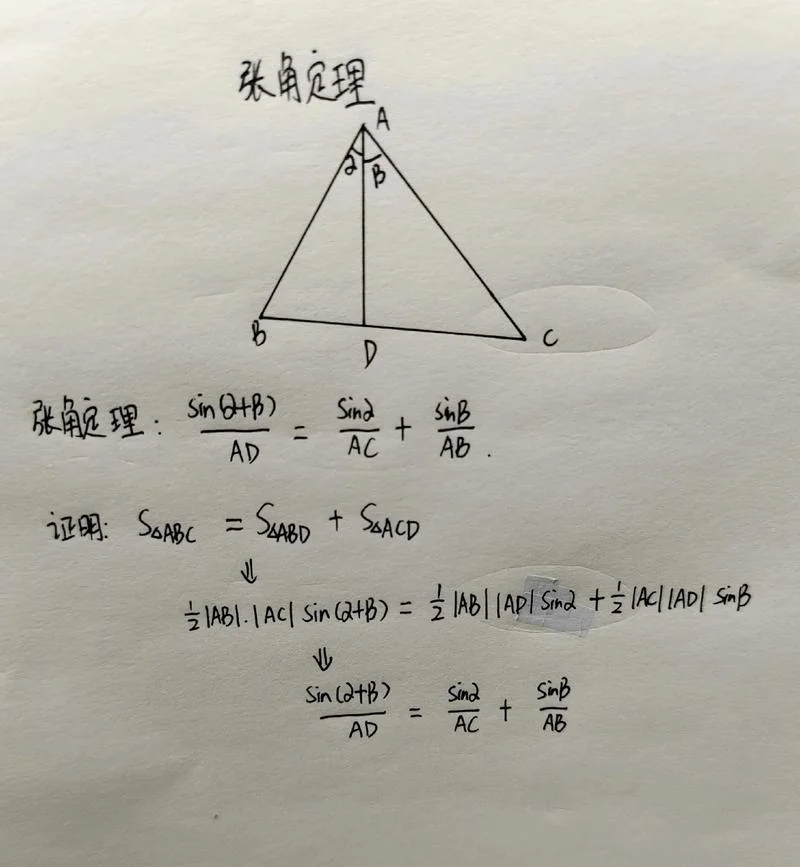 张角定理
A
α β
B
D
C
张角定理: sin(α+β)/AD = sinα/AC + sinβ/AB.
证明: S△ABC = S△ABD + S△ACD
⇓
½|AB|·|AC| sin(α+β) = ½|AB||AD| sinα + ½|AC||AD| sinβ
⇓
sin(α+β)/AD = sinα/AC + sinβ/AB